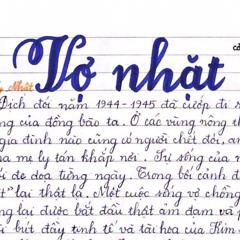 Vợ nhặt
Nhặt
Dịch đói năm 1944-1945 đã cướp đi s
ng của đồng bào ta. Ở các vùng nông th
gia đình nào cũng có người chết đói, a
ha mẹ ly tán khắp nơi. Sự sống của n
ối đe dọa từng ngày. Trong bối cảnh đ
t" lại thật lạ. Một cuộc sống vợ chồng
ng lại được bắt đầu thật ảm đạm và
i bút đầy tinh tế và tài hoa của Kim